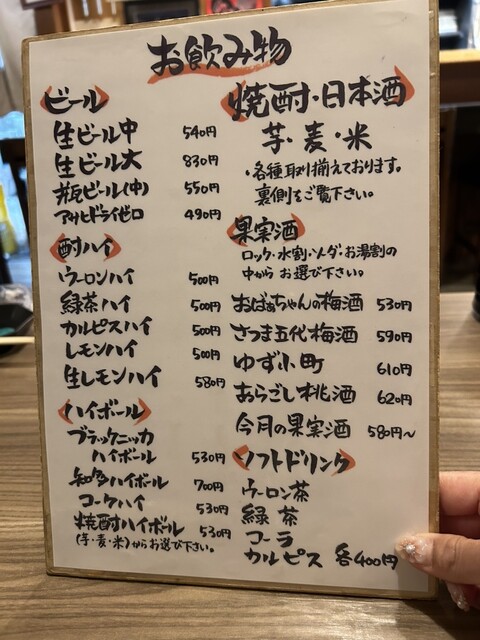 お飲み物
ビール
生ビール中 540円
生ビール大 830円
瓶ビール(中) 550円
アサヒドライゼロ 490円
酎ハイ
ウーロンハイ 500円
緑茶ハイ 500円
カルピスハイ 500円
レモンハイ 500円
生レモンハイ 580円
ハイボール
ブラックニッカ
ハイボール 530円
知多ハイボール 700円
コークハイ 530円
焼酎ハイボール 530円
(芋・麦・米)からお選び下さい。
焼酎・日本酒
芋・麦・米
・各種取り揃えております。
裏側をご覧下さい。
果実酒
ロック・水割・ソーダ・お湯割の
中から お選び下さい。
おばあちゃんの梅酒 530円
さつま五代梅酒 590円
ゆず小町 610円
あらごし桃酒 620円
今月の果実酒 580円~
ソフトドリンク
ウーロン茶
緑茶
コーラ
カルピス 各400円